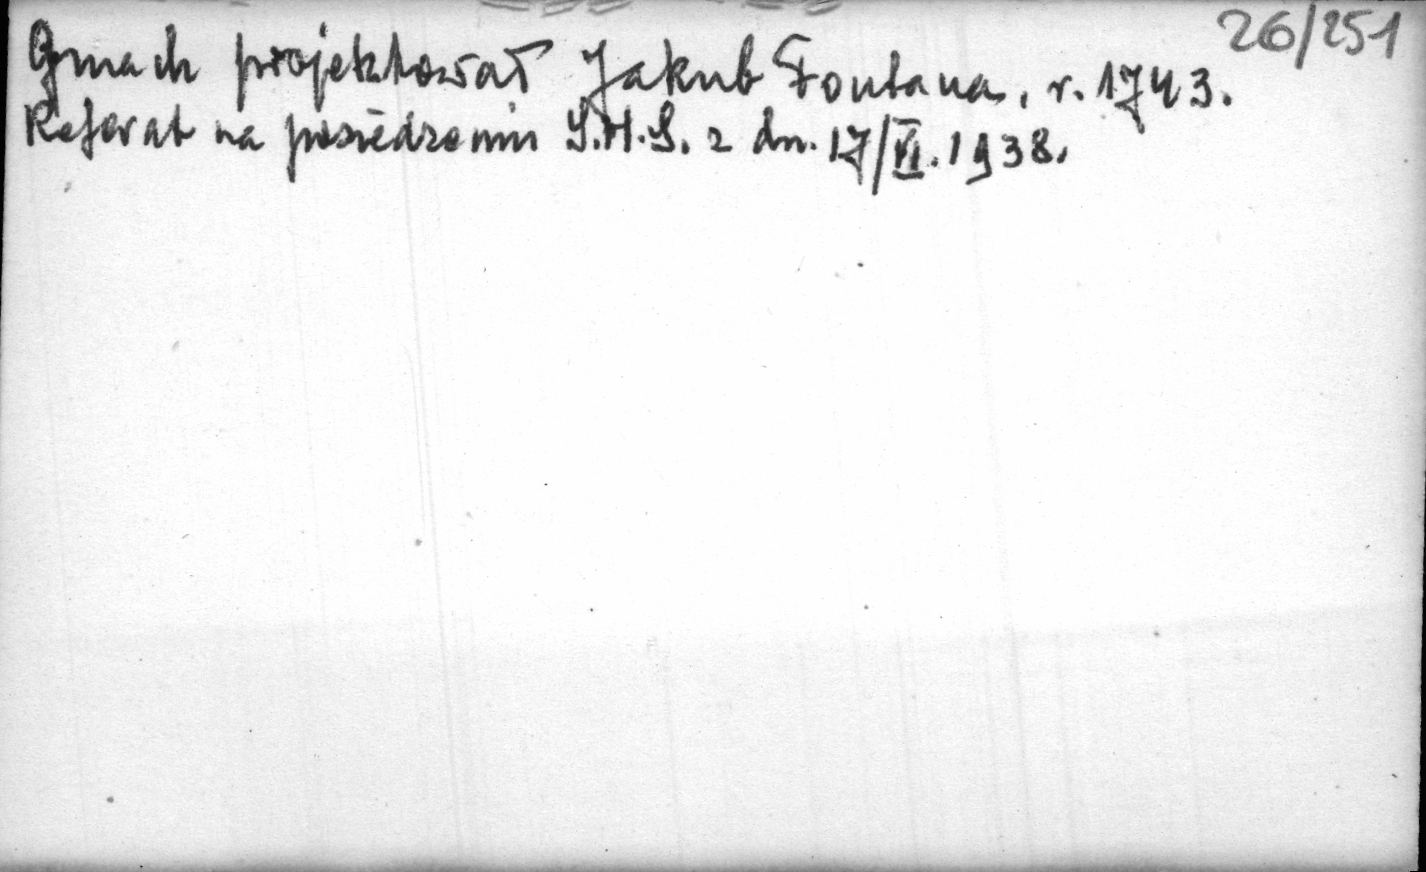 26/251
Gmach projektował Jakub Fontana, r. 1743.
Referat na posiedzeniu S.H.S. z dn. 17/VI. 1938.